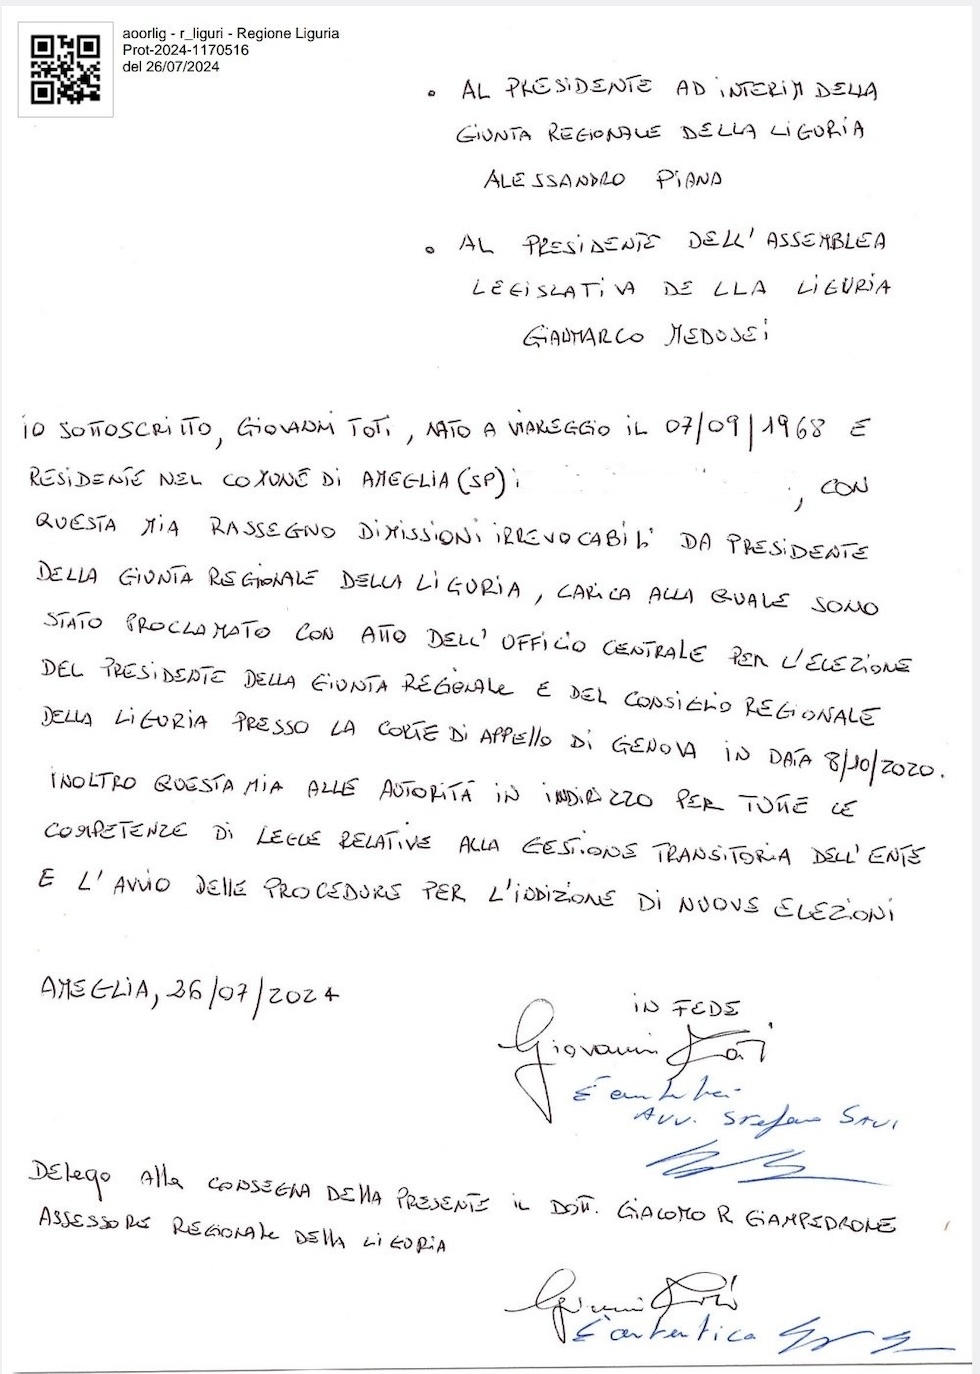 aoorlig - r_liguri - Regione Liguria
Prot-2024-1170516
del 26/07/2024
• AL PRESIDENTE AD INTERIM DELLA
GIUNTA REGIONALE DELLA LIGURIA
ALESSANDRO PIANA
• AL PRESIDENTE DELL'ASSEMBLEA
LEGISLATIVA DELLA LIGURIA
GIANMARCO MEDUSEI
IO SOTTOSCRITTO, GIOVANNI TOTI, NATO A VIAREGGIO IL 07/09/1968 E
RESIDENTE NEL COMUNE DI AMEGLIA (SP) , CON
QUESTA MIA RASSEGNO DIMISSIONI IRREVOCABILI DA PRESIDENTE
DELLA GIUNTA REGIONALE DELLA LIGURIA, CARICA ALLA QUALE SONO
STATO PROCLAMATO CON ATTO DELL'UFFICIO CENTRALE PER L'ELEZIONE
DEL PRESIDENTE DELLA GIUNTA REGIONALE E DEL CONSIGLIO REGIONALE
DELLA LIGURIA PRESSO LA CORTE DI APPELLO DI GENOVA IN DATA 8/10/2020.
INOLTRO QUESTA MIA ALLE AUTORITÀ IN INDIRIZZO PER TUTTE LE
COMPETENZE DI LEGGE RELATIVE ALLA GESTIONE TRANSITORIA DELL'ENTE
E L'AVVIO DELLE PROCEDURE PER L'INDIZIONE DI NUOVE ELEZIONI
AMEGLIA, 26/07/2024
IN FEDE
Giovanni Toti
È autentica
Avv. Stefano Savi
DELEGO ALLA CONSEGNA DELLA PRESENTE IL DOTT. GIACOMO R GIAMPEDRONE
ASSESSORE REGIONALE DELLA LIGURIA
Giovanni Toti
È autentica